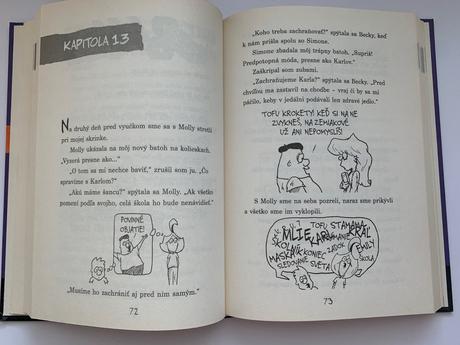 KAPITOLA 13
Na druhý deň pred vyučkom sme sa s Molly stretli
pri mojej skrinke.
Molly ukázala na môj nový batoh na kolieskach.
„Vyzerá presne ako...“
„O tom sa mi nechce baviť,“ zrušil som ju. „Čo
spravíme s Karlom?“
„Akú máme šancu?“ spýtala sa Molly. „Ak všetko
pomotí podľa svojho, celá škola ho bude nenávidieť.“
POVINNÉ
OBJATIE!
„Musíme ho zachrániť aj pred ním samým.“
72
„Koho treba zachraňovať?“ spýtala sa Becky, keď
k nám prišla spolu so Simone.
Simone zbadala môj trápny batoh. „Supriš!
Predpotopná móda, presne ako Karlov.“
Zaškrípal som zubami.
„Zachraňujeme Karla?“ spýtala sa Becky. „Pred
chvíľou ma zastavil na chodbe – vraj či by sa mi
páčilo, keby v jedálni podávali len zdravé jedlo.“
TOFU KROKETY! KEĎ SI NA NE
ZVYKNEŠ, NA ZEMIAKOVÉ
UŽ ANI NEPOMYSLÍŠ!
S Molly sme na seba pozreli, naraz sme prikývli
a všetko sme im vyklopili.
TOFU STAMANA
MLIE KARL KRÁĽ
ŠKOLNÍK
MASKA KONIEC ZADOK EMILY
SLEDOVANIE SVETA ŠKOLA
73